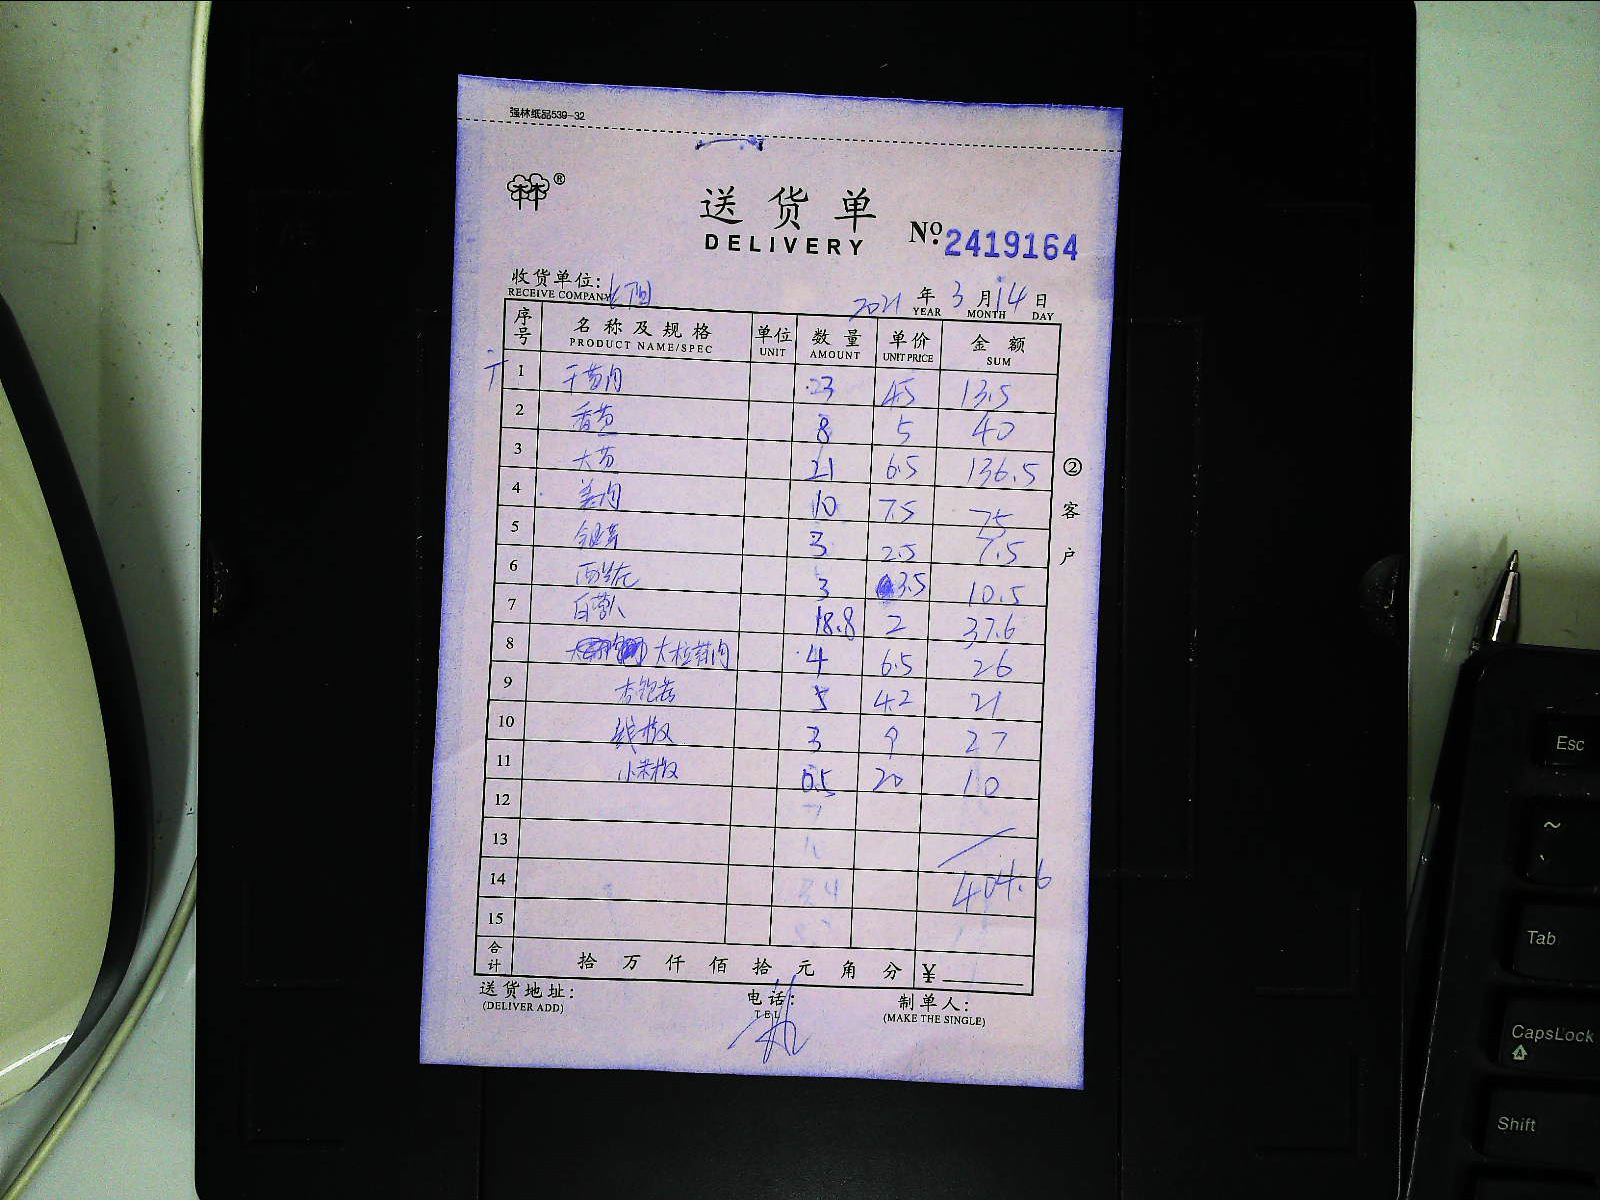 强林纸品539-32
®
送货单
DELIVERY
№ 2419164
收货单位:
RECEIVE COMPANY
2021 年 3 月 14 日
YEAR MONTH DAY
序号 名称及规格 单位 数量 单价 金额
PRODUCT NAME/SPEC UNIT AMOUNT UNIT PRICE SUM
1 干黄肉 23 4.5 13.5
2 香黄 8 5 40
3 大黄 21 6.5 136.5
4 美肉 10 7.5 75
5 3 2.5 7.5
6 西兰花 3 3.5 10.5
7 18.8 2 37.6
8 4 6.5 26
9 杏鲍菇 5 4.2 21
10 线椒 3 9 27
11 小米椒 0.5 20 10
12
13
14 404.6
15
合计 拾 万 仟 佰 拾 元 角 分 ¥
② 客户
送货地址:
(DELIVER ADD)
电话:
TEL
制单人:
(MAKE THE SINGLE)
Esc
~
Tab
CapsLock
Shift